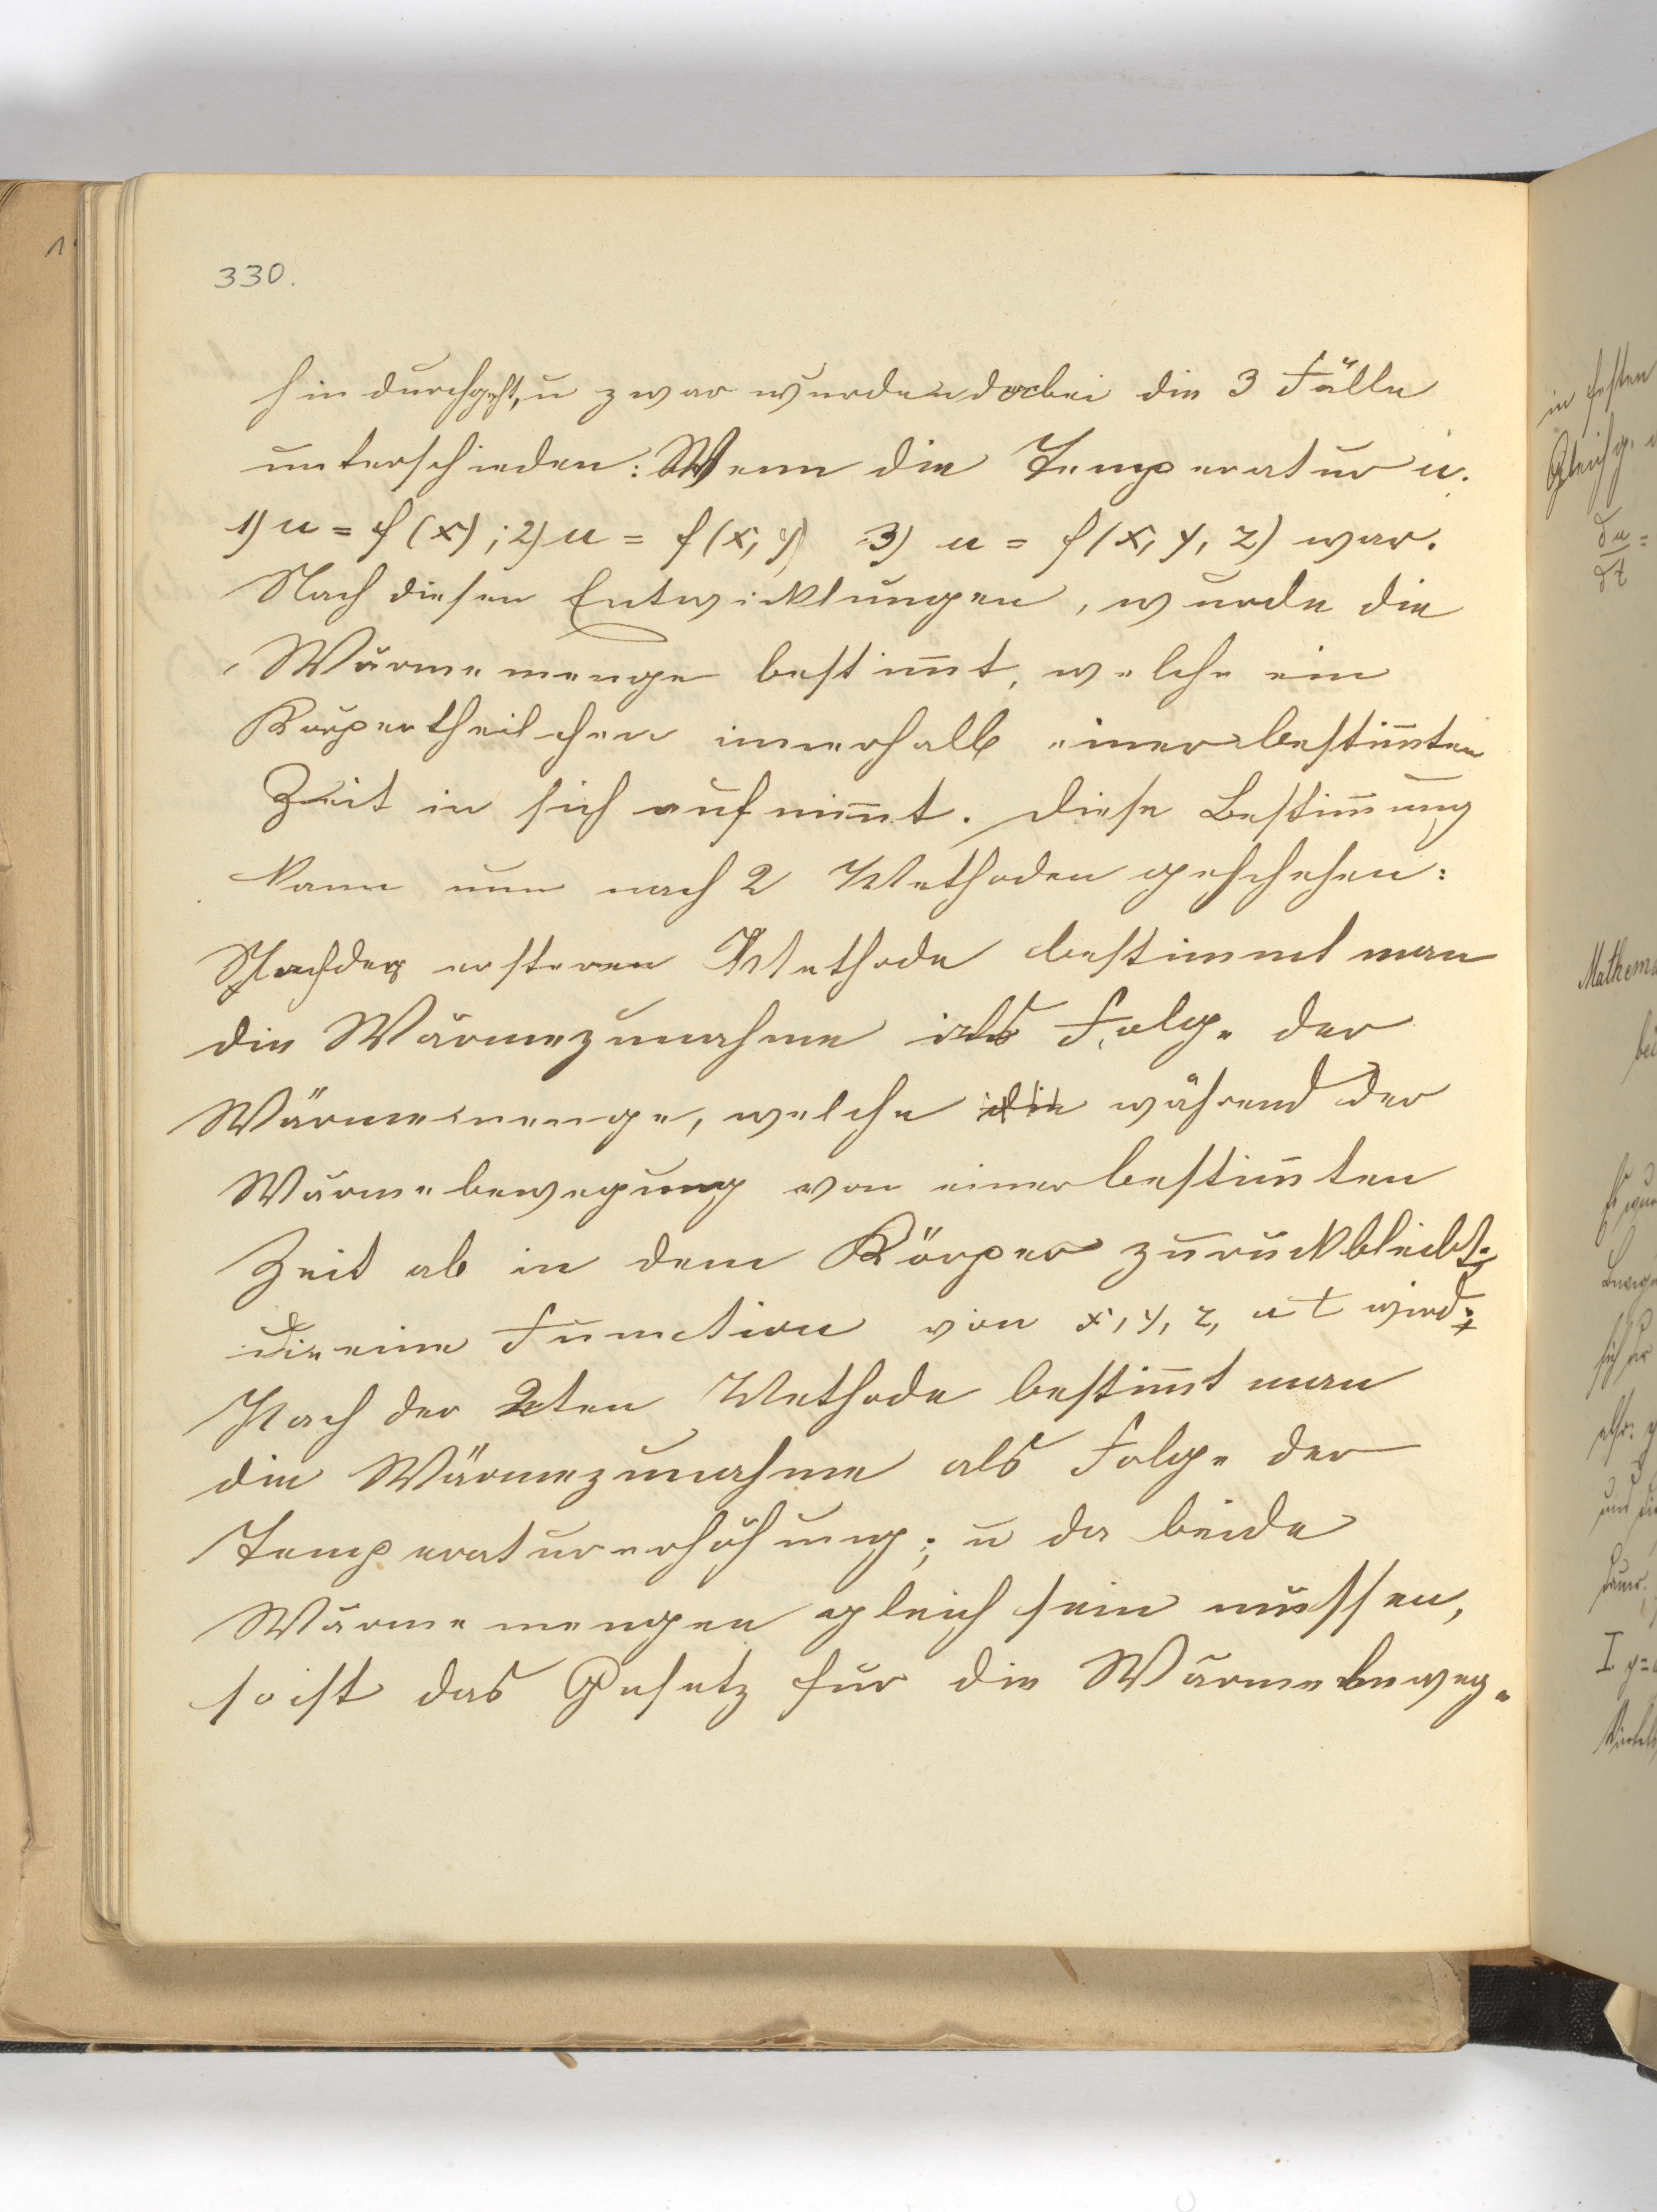 330.
hindurchgeht, u zwar wurden dabei die 3 Fälle
unterschieden: Wenn die Temperatur u.
1) u = f(x); 2) u = f(x, y) 3) u = f(x, y, z) war.
Nach diesen Entwicklungen, wurde die
Wärmemenge bestim̅t, welche ein
Körpertheilchen innerhalb einer bestim̅ten
Zeit in sich aufnim̅t. Diese Bestim̅ung
kann nun nach 2 Methoden geschehen:
Nach der ersteren Methode bestimmt man
die Wärmezunahme als Folge der
Wärmemenge, welche die während der
Wärmebewegung von einer bestim̅ten
Zeit ab in dem Körper zurückbleibt,
die eine Function von x, y, z, u t wird;
Nach der 2ten Methode bestim̅t man
die Wärmezunahme als Folge der
Temperaturerhöhung; u da beide
Wärmemengen gleich sein müssen,
so ist das Gesetz für die Wärmebeweg.
in festen
Gleichg.
du =
dt
Mathema
bei
Es wur
Beweg
sich
also:
und die